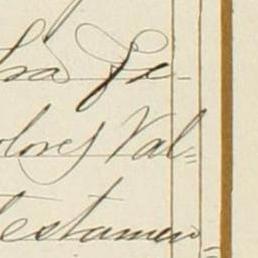 ra Fe-
olores Val-
estamen-